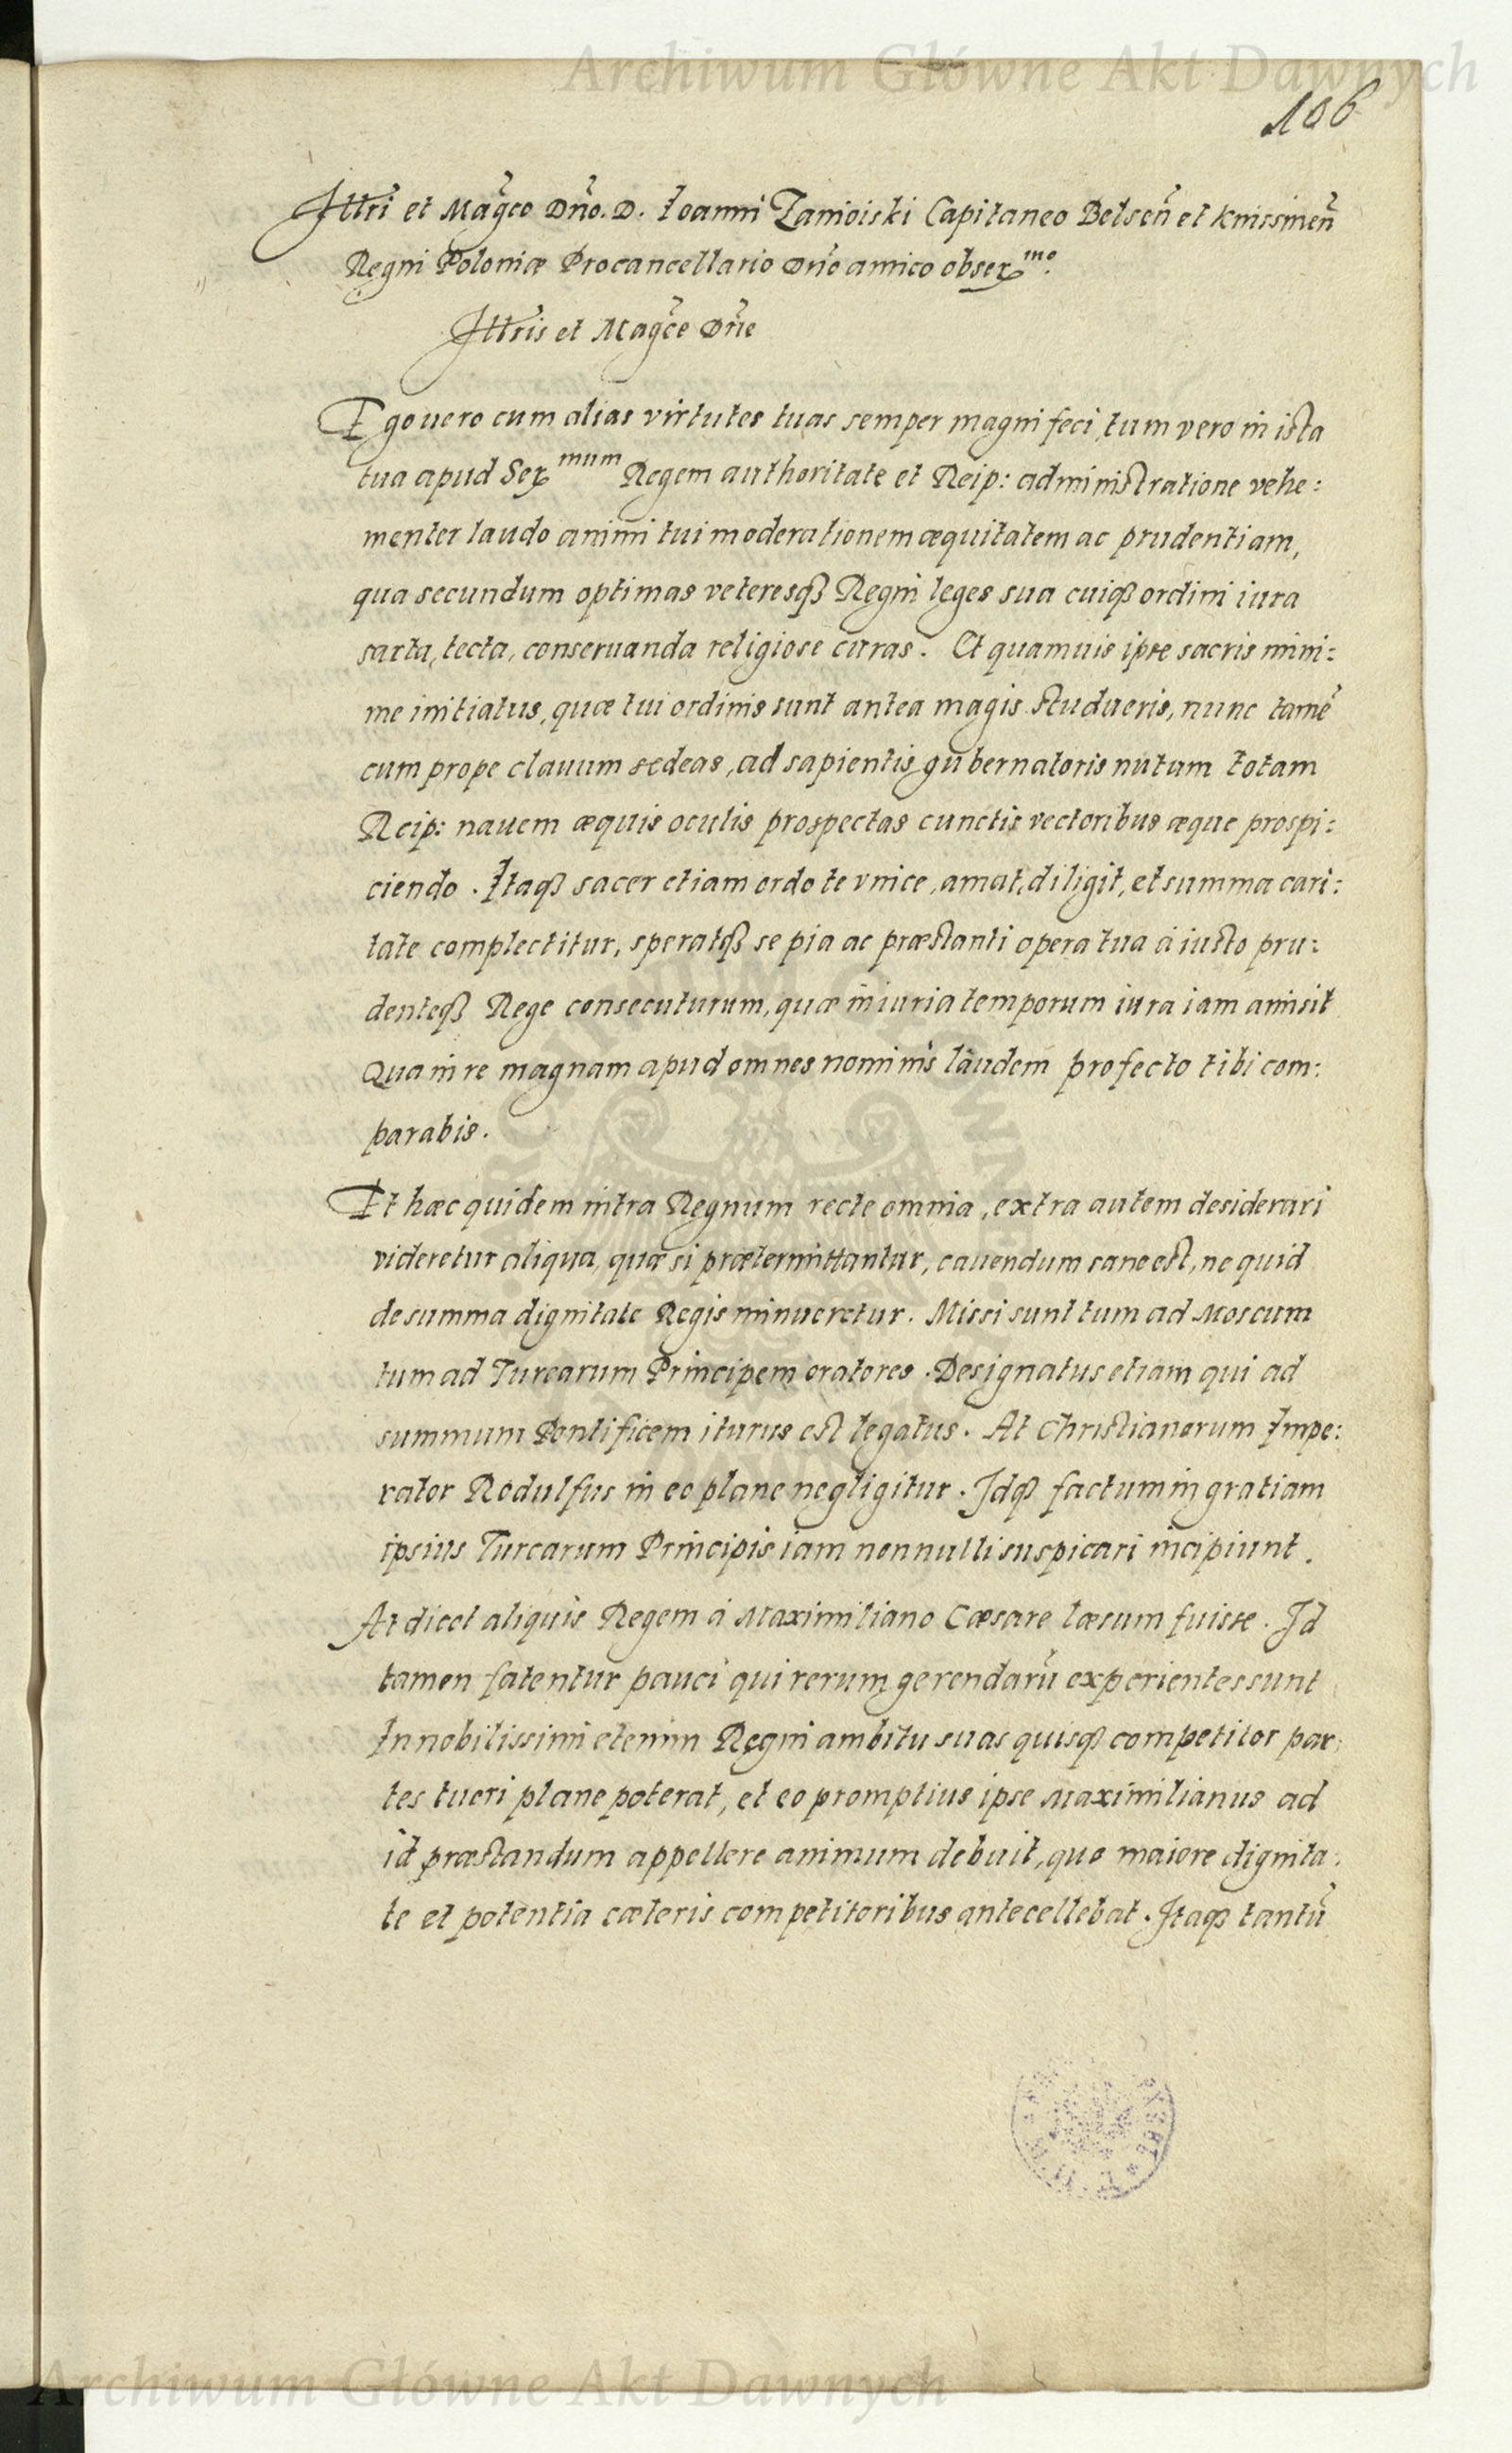 Archiwum Główne Akt Dawnych
106
Illri et Magco Dno. D. Ioanni Zamoiski Capitaneo Belsen et Knissinen
Regni Poloniæ Procancellario Dno amico obsermo.
Illris et Magce Dne
Ego uero cum alias virtutes tuas semper magni feci, tum vero in ista
tua apud Sermum Regem authoritate et Reip: administratione vehe:
menter laudo animi tui moderationem æquitatem ac prudentiam,
qua secundum optimas veteresqß Regni leges sua cuiqß ordini iura
sarta, tecta, conseruanda religiose curas. Et quamuis ipse sacris mini:
me initiatus, quæ tui ordinis sunt antea magis studueris, nunc tamē
cum prope clauum sedeas, ad sapientis gubernatoris nutum totam
Reip: nauem æquis oculis prospectas cunctis vectoribus æque prospi:
ciendo. Itaqß sacer etiam ordo te vnice, amat, diligit, et summa cari:
tate complectitur, speratqß se pia ac præstanti opera tua à iusto pru:
denteqß Rege consecuturum, quæ iniuria temporum iura iam amisit
Qua in re magnam apud omnes nominis laudem profecto tibi com:
parabis.
Et hæc quidem intra Regnum recte omnia, extra autem desiderari
videretur aliqua, quæ si prætermittantur, cauendum sane est, ne quid
de summa dignitate Regis minueretur. Missi sunt tum ad Moscum
tum ad Turcarum Principem oratores. Designatus etiam qui ad
summum Pontificem iturus est legatus. At Christianorum Impe:
rator Rodulfus in eo plane negligitur. Idqß factum in gratiam
ipsius Turcarum Principis iam nonnulli suspicari incipiunt.
At dicet aliquis Regem à Maximiliano Cæsare læsum fuisse. Id
tamen fatentur pauci qui rerum gerendarū experientes sunt
In nobilissimi etenim Regni ambitu suas quisqß competitor par:
tes tueri plane poterat, et eo promptius ipse Maximilianus ad
id præstandum appellere animum debuit, quo maiore dignita:
te et potentia cæteris competitoribus antecellebat. Itaqß tantū
Archiwum Główne Akt Dawnych